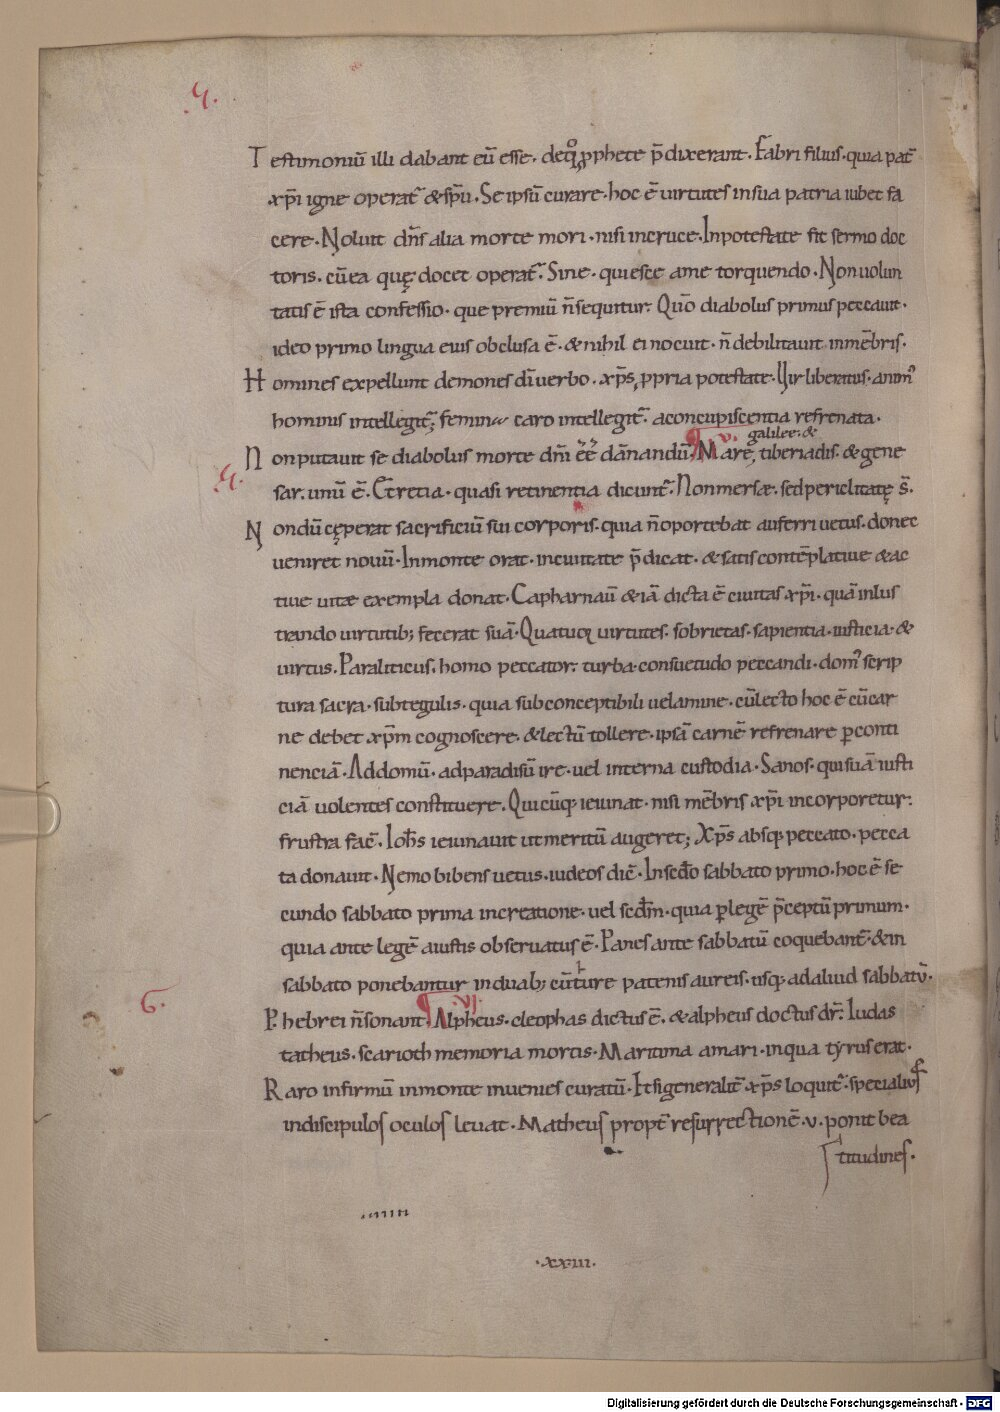 4.
Testimoniū illi dabant eū esse. de q̊ p̱phete p̄dixerant. Fabri filius. quia pat̄
xp̄i igne operat̄ & sp̄u. Se ipsū curare. hoc ē virtutes in sua patria iubet fa
cere. Noluit dn̄s alia morte mori. nisi in cruce. In potestate fit sermo doc
toris. cū ea quę docet operat̄. Sine. quiesce a me torquendo. Non uolun
tatis ē ista confessio. que premiū n̄ sequitur. Quō diabolus primus peccauit.
ideo primo lingua eius obclusa ē. & nihil ei nocuit. n̄ debilitauit in mēbris.
Homines expellunt demones dī uerbo. xp̄s p̱pria potestate. Vir liberatus. anim᾽
hominis intellegit̄; femina caro intellegit̄. a concupiscentia refrenata.
v. galilee. &
Non putauit se diabolus morte dn̄i ēē dānandū. Mare, tiberiadis. & gene
4.
sar. unū ē. Et retia. quasi retinentia dicunt̄. Non mersæ. sed periclitatę s̄.
Nondū cęperat sacrificiū sui corporis. quia n̄ oportebat auferri uetus. donec
ueniret nouū. In monte orat. in ciuitate p̄dicat. & satis contēplatiue & ac
tiue uitæ exempla donat. Capharnaū & iā dicta ē ciuitas xp̄i. quā inlus
trando uirtutib; fecerat suā. Quatuor uirtutes. sobrietas. sapientia. iusticia. &
uirtus. Paraliticus. homo peccator. turba. consuetudo peccandi. dom᾽ scrip
tura sacra. sub tegulis. quia sub conceptibili uelamine. cū lecto hoc ē cū car
ne debet xp̄m cognoscere. & lectū tollere. ipsā carnē refrenare p̱ conti
nenciā. Ad domū. ad paradisū ire. uel interna custodia. Sanos. qui suā iusti
ciā uolentes constituere. Quicūq; ieiunat. nisi mēbris xp̄i incorporetur.
frustra fac̄. Ioħs ieiunauit ut meritū augeret; Xp̄s absq; peccato. pecca
ta donauit. Nemo bibens uetus. iudeos dic̄. In scd̄o sabbato primo. hoc ē se
cundo sabbato prima in creatione. uel scd̄m. quia p̱ legē p̄ceptū primum.
quia ante legē a iustis obseruatus ē. Panes ante sabbatū coquebant̄. & in
sabbato ponebantur in duab; cū ture patenis aureis. usq; ad aliud sabbatū.
6. vi.
P. hebrei n̄ sonant. Alpheus. cleophas dictus ē. & alpheus doctus dr̄. Iudas
tatheus. scarioth memoria mortis. Maritima amari. in qua tyrus erat.
Raro infirmū in monte inuenies curatū. Et si generalit̄ xp̄s loquit̄. specialius
in discipulos oculos leuat. Matheus propt̄ resurrectionē. v. ponit bea
titudines.
.xxiii.
Digitalisierung gefördert durch die Deutsche Forschungsgemeinschaft - DFG